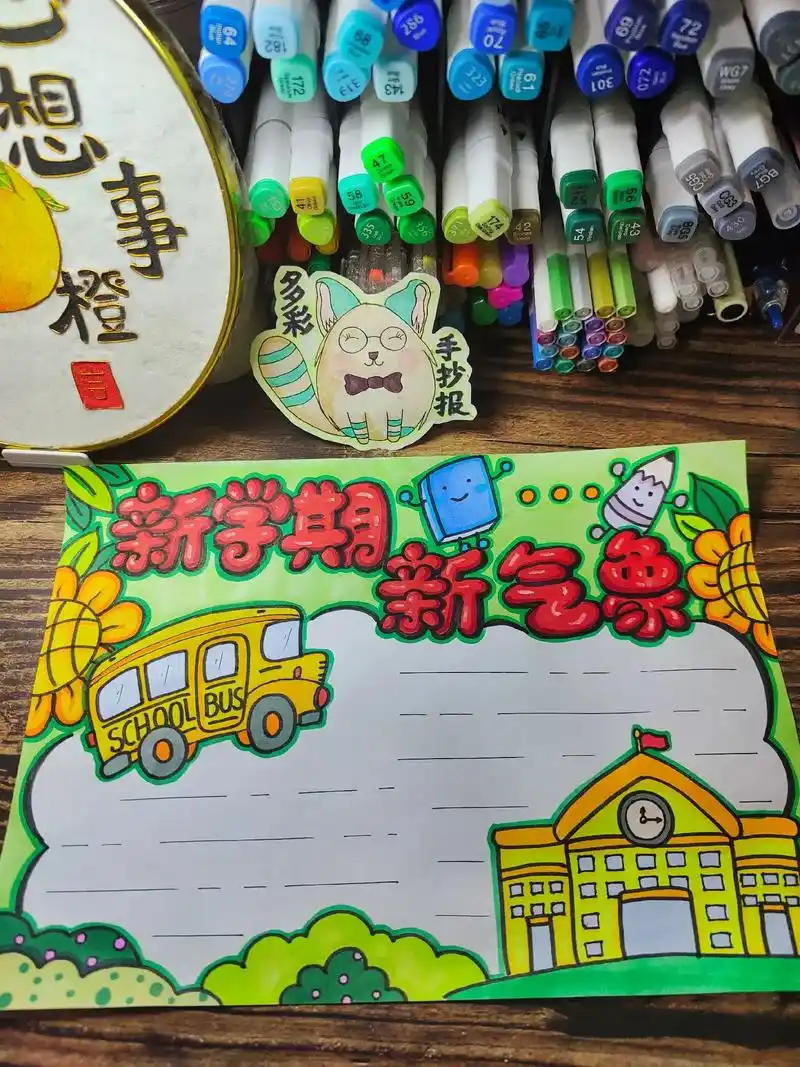 64
182
68
286
70
69
69
72
172
313
143
323
61
301
072
WG7
47
41
58
59
174
42
54
43
56
BG7
想
事
橙
多彩
手抄报
新学期
新气象
SCHOOL BUS